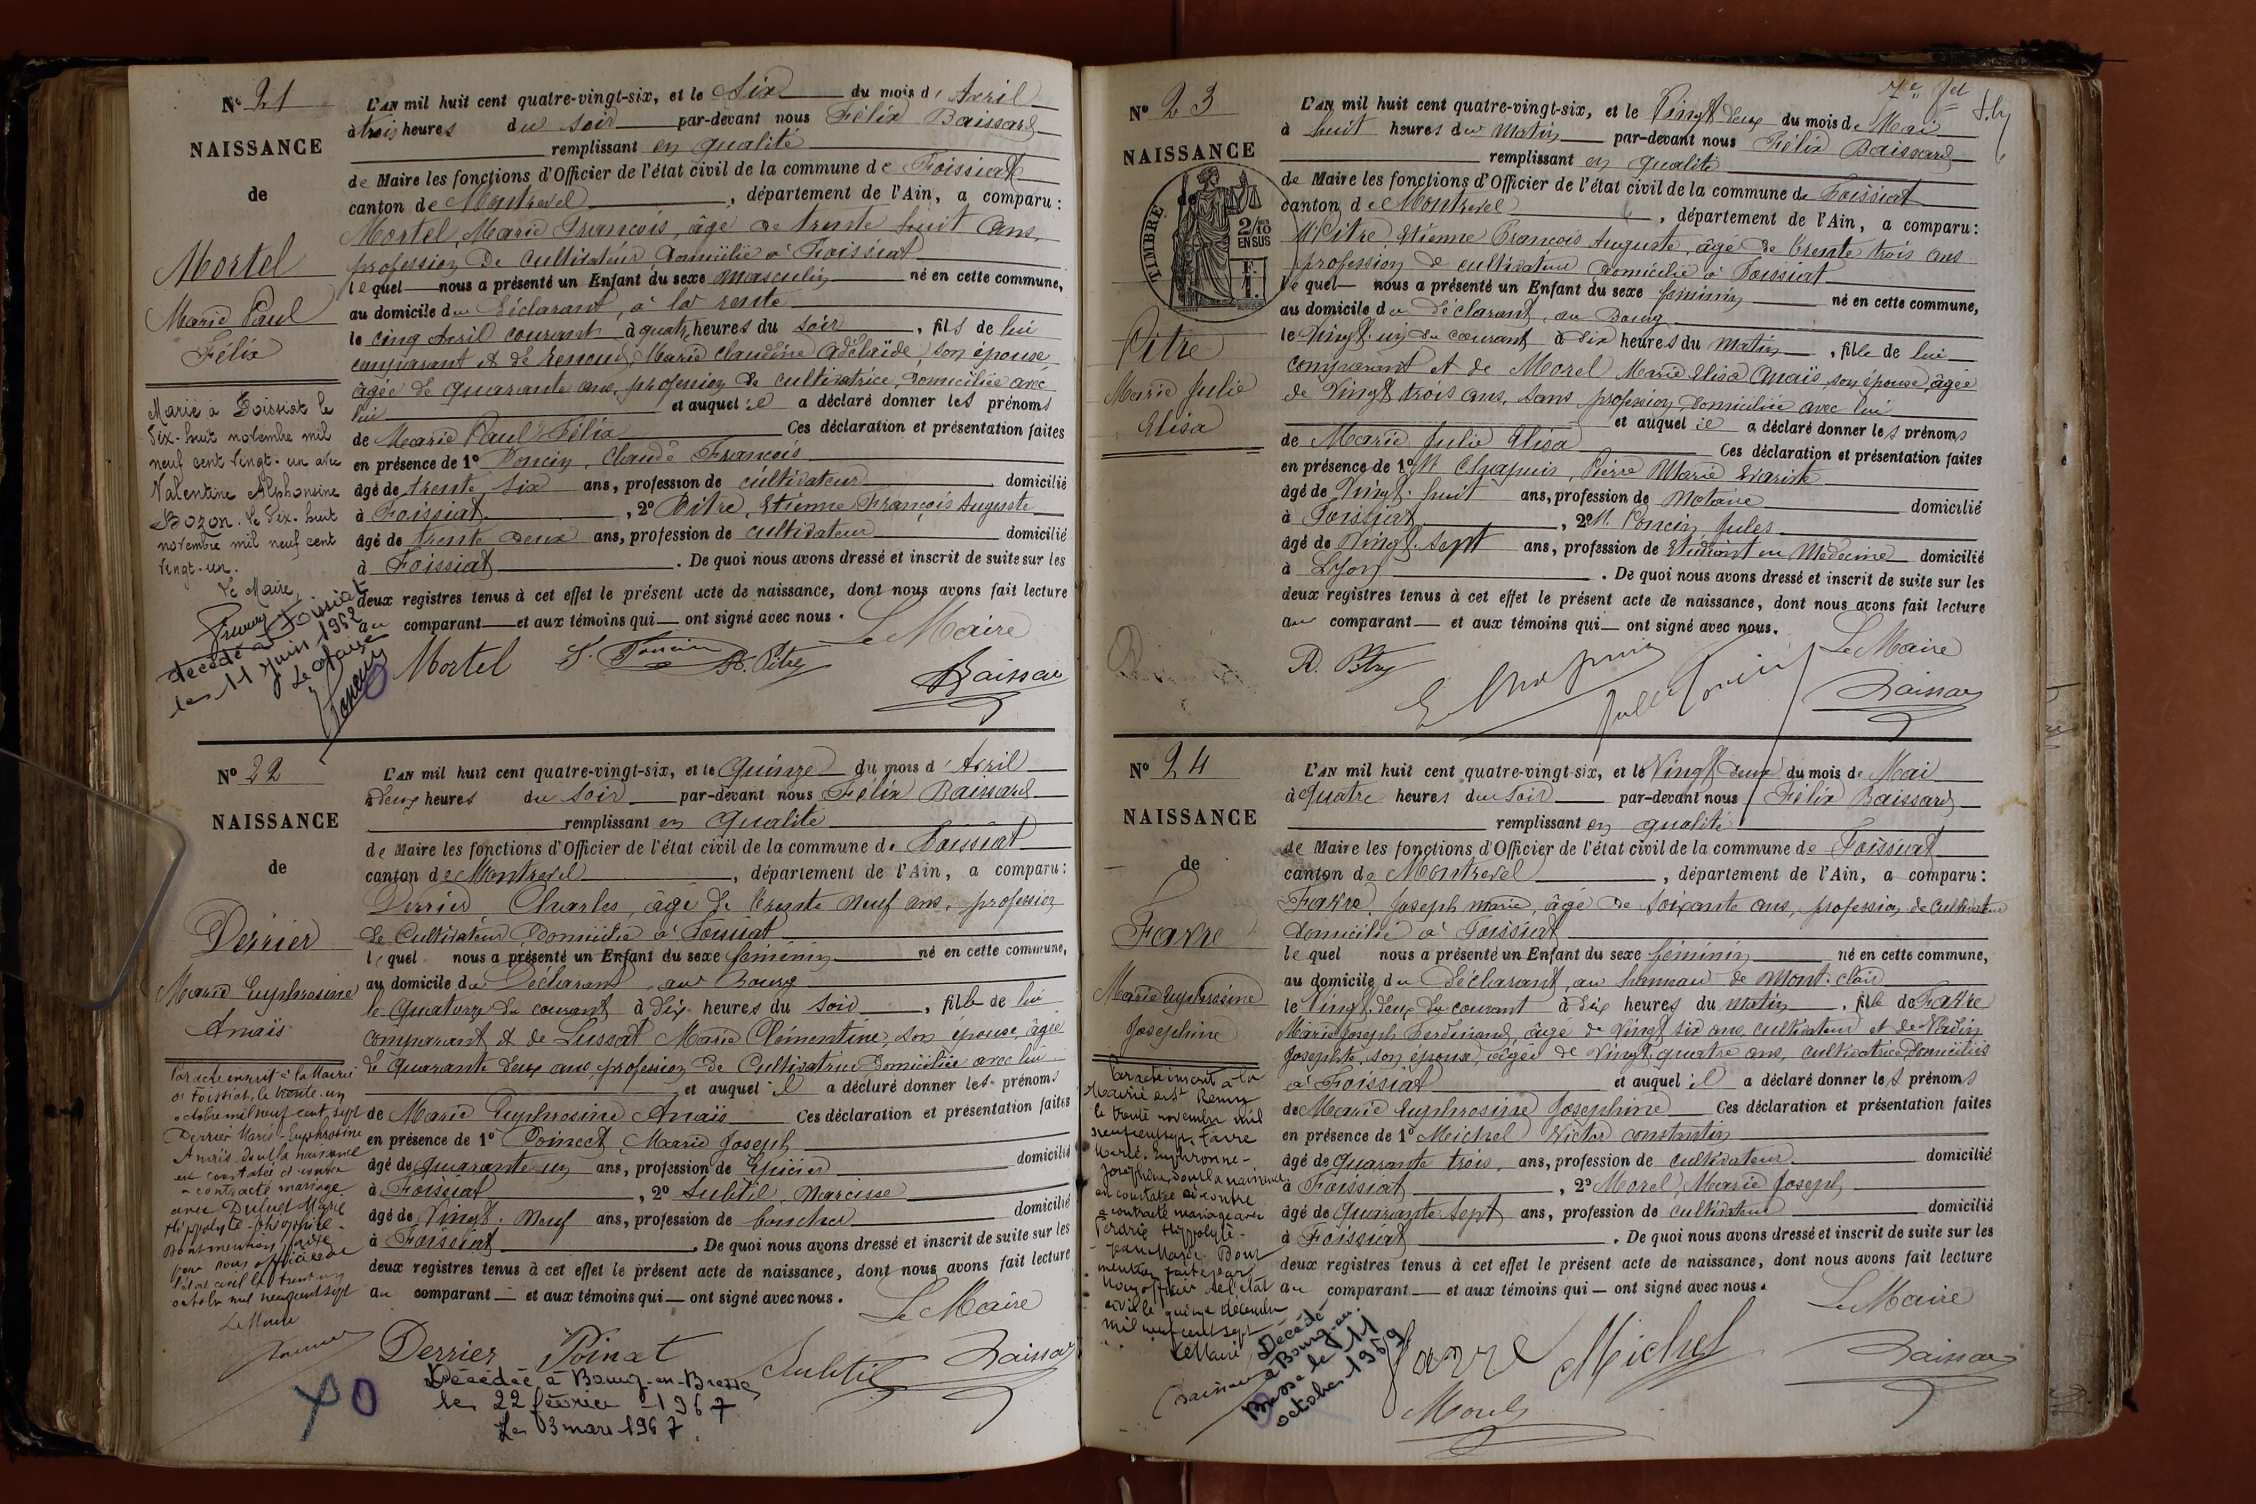 N° 21
NAISSANCE
de
Mortel
Marie Paul
Félix
Marié à Foissiat le
dix-huit novembre mil
neuf cent vingt-un avec
Valentine Alphonsine
Bozon. Le dix-huit
novembre mil neuf cent
vingt-un.
Le Maire,
décédé à Foissiat
le 11 juin 1952
Le Maire
L'AN mil huit cent quatre-vingt-six, et le Six du mois d'Avril
à trois heures du soir par-devant nous Félix Baissard
remplissant en qualité
de Maire les fonctions d'Officier de l'état civil de la commune de Foissiat
canton de Montrevel, département de l'Ain, a comparu:
Mortel, Marie François, âgé de trente huit ans,
profession de cultivateur domicilié à Foissiat
lequel nous a présenté un Enfant du sexe masculin né en cette commune,
au domicile du déclarant, à la
le cinq Avril courant à quatre heures du soir, fils de lui
comparant et de Marie Claudine Adélaïde, son épouse
âgée de quarante ans, profession de cultivatrice, domiciliée avec
lui et auquel il a déclaré donner les prénoms
de Marie Paul Félix Ces déclaration et présentation faites
en présence de 1° Poncin, Claude François
âgé de trente six ans, profession de cultivateur domicilié
à Foissiat, 2° Pitre, Etienne François Auguste
âgé de trente deux ans, profession de cultivateur domicilié
à Foissiat. De quoi nous avons dressé et inscrit de suite sur les
deux registres tenus à cet effet le présent acte de naissance, dont nous avons fait lecture
au comparant et aux témoins qui ont signé avec nous.
Le Maire
Mortel Poncin A. Pitre Baissard
N° 22
NAISSANCE
de
Derrier
Marie Euphrosine
Anaïs
Par acte inscrit à la Mairie
de Foissiat, le trente-un
octobre mil neuf cent sept
Derrier Marie-Euphrosine
Anaïs, dont la naissance
est constatée ci-contre
a contracté mariage
avec Dufuet Marie
Hippolyte-Théophile.
Dont mention faite
par nous officier de
l'état civil le trente un
octobre mil neuf cent sept
Le Maire
L'AN mil huit cent quatre-vingt-six, et le Quinze du mois d'Avril
à deux heures du soir par-devant nous Félix Baissard
remplissant en qualité
de Maire les fonctions d'Officier de l'état civil de la commune de Foissiat
canton de Montrevel, département de l'Ain, a comparu:
Derrier Charles, âgé de trente neuf ans, profession
de cultivateur domicilié à Foissiat
lequel nous a présenté un Enfant du sexe féminin né en cette commune,
au domicile du Déclarant, au Bourg
le quatorze du courant à dix heures du soir, fille de lui
comparant et de Lussat Marie Clémentine, son épouse, âgée
de quarante deux ans, profession de cultivatrice domiciliée avec lui
et auquel il a déclaré donner les prénoms
de Marie Euphrosine Anaïs Ces déclaration et présentation faites
en présence de 1° Marie Joseph
âgé de quarante un ans, profession de Epicier domicilié
à Foissiat, 2° Subtil, Narcisse
âgé de Vingt-neuf ans, profession de boucher domicilié
à Foissiat. De quoi nous avons dressé et inscrit de suite sur les
deux registres tenus à cet effet le présent acte de naissance, dont nous avons fait lecture
au comparant et aux témoins qui ont signé avec nous.
Le Maire
Derrier Subtil Baissard
Décédée à Bourg-en-Bresse
le 22 février 1967
Le 03 mars 1967
N° 23
NAISSANCE
de
TIMBRE
2/10
EN SUS
Pitre
Marie Julie
Elisa
L'AN mil huit cent quatre-vingt-six, et le Vingt deux du mois de Mai
à huit heures du matin par-devant nous Félix Baissard
remplissant en qualité
de Maire les fonctions d'Officier de l'état civil de la commune de Foissiat
canton de Montrevel, département de l'Ain, a comparu:
M. Pitre, Etienne François Auguste, âgé de trente trois ans
profession de cultivateur domicilié à Foissiat
lequel nous a présenté un Enfant du sexe féminin né en cette commune,
au domicile du déclarant, au Bourg
le Vingt-un du courant à dix heures du matin, fille de lui
comparant et de Morel Marie Elisa Anaïs, son épouse, âgée
de Vingt trois ans, sans profession, domiciliée avec lui
et auquel il a déclaré donner les prénoms
de Marie Julie Elisa Ces déclaration et présentation faites
en présence de 1° M. Chapuis, Pierre Marie Evariste
âgé de Vingt-huit ans, profession de Notaire domicilié
à Foissiat, 2° M. Poncin Jules
âgé de Vingt-sept ans, profession de Etudiant en Médecine domicilié
à Lyon. De quoi nous avons dressé et inscrit de suite sur les
deux registres tenus à cet effet le présent acte de naissance, dont nous avons fait lecture
au comparant et aux témoins qui ont signé avec nous.
Le Maire
A. Pitre E. Chapuis Jules Poncin Baissard
N° 24
NAISSANCE
de
Favre
Marie Euphrosine
Joséphine
Par acte inscrit à la
Mairie de St Remy
le trente novembre mil
neuf cent sept, Favre
Marie-Euphrosine-
Joséphine, dont la naissance
est constatée ci-contre
a contracté mariage avec
Hippolyte-
Jean Marie. Dont
mention faite par
nous officier de l'état
civil le quinze décembre
mil neuf cent sept
Le Maire,
Décédée
à Bourg-en-
Bresse le 11
octobre 1969
L'AN mil huit cent quatre-vingt-six, et le Vingt deux du mois de Mai
à quatre heures du soir par-devant nous Félix Baissard
remplissant en qualité
de Maire les fonctions d'Officier de l'état civil de la commune de Foissiat
canton de Montrevel, département de l'Ain, a comparu:
Favre, Joseph Marie, âgé de soixante ans, profession de cultivateur
domicilié à Foissiat
lequel nous a présenté un Enfant du sexe féminin né en cette commune,
au domicile du déclarant, au hameau de Mont-clair
le Vingt-deux du courant à dix heures du matin, fille de Favre
Marie Joseph Ferdinand, âgé de vingt six ans, cultivateur et de
Josephte, son épouse, âgée de vingt-quatre ans, cultivatrice, domiciliés
à Foissiat et auquel il a déclaré donner les prénoms
de Marie Euphrosine Joséphine Ces déclaration et présentation faites
en présence de 1° Michel Victor Constantin
âgé de quarante trois ans, profession de cultivateur domicilié
à Foissiat, 2° Morel, Marie Joseph
âgé de quarante-sept ans, profession de cultivateur domicilié
à Foissiat. De quoi nous avons dressé et inscrit de suite sur les
deux registres tenus à cet effet le présent acte de naissance, dont nous avons fait lecture
au comparant et aux témoins qui ont signé avec nous.
Le Maire
Favre Michel Baissard
Morel